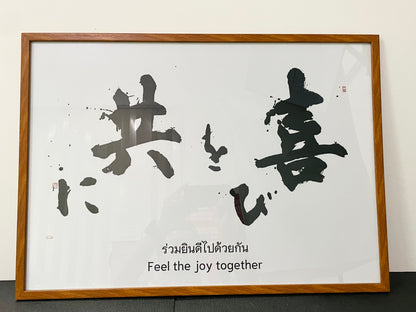 喜びを共に
ร่วมยินดีไปด้วยกัน
Feel the joy together